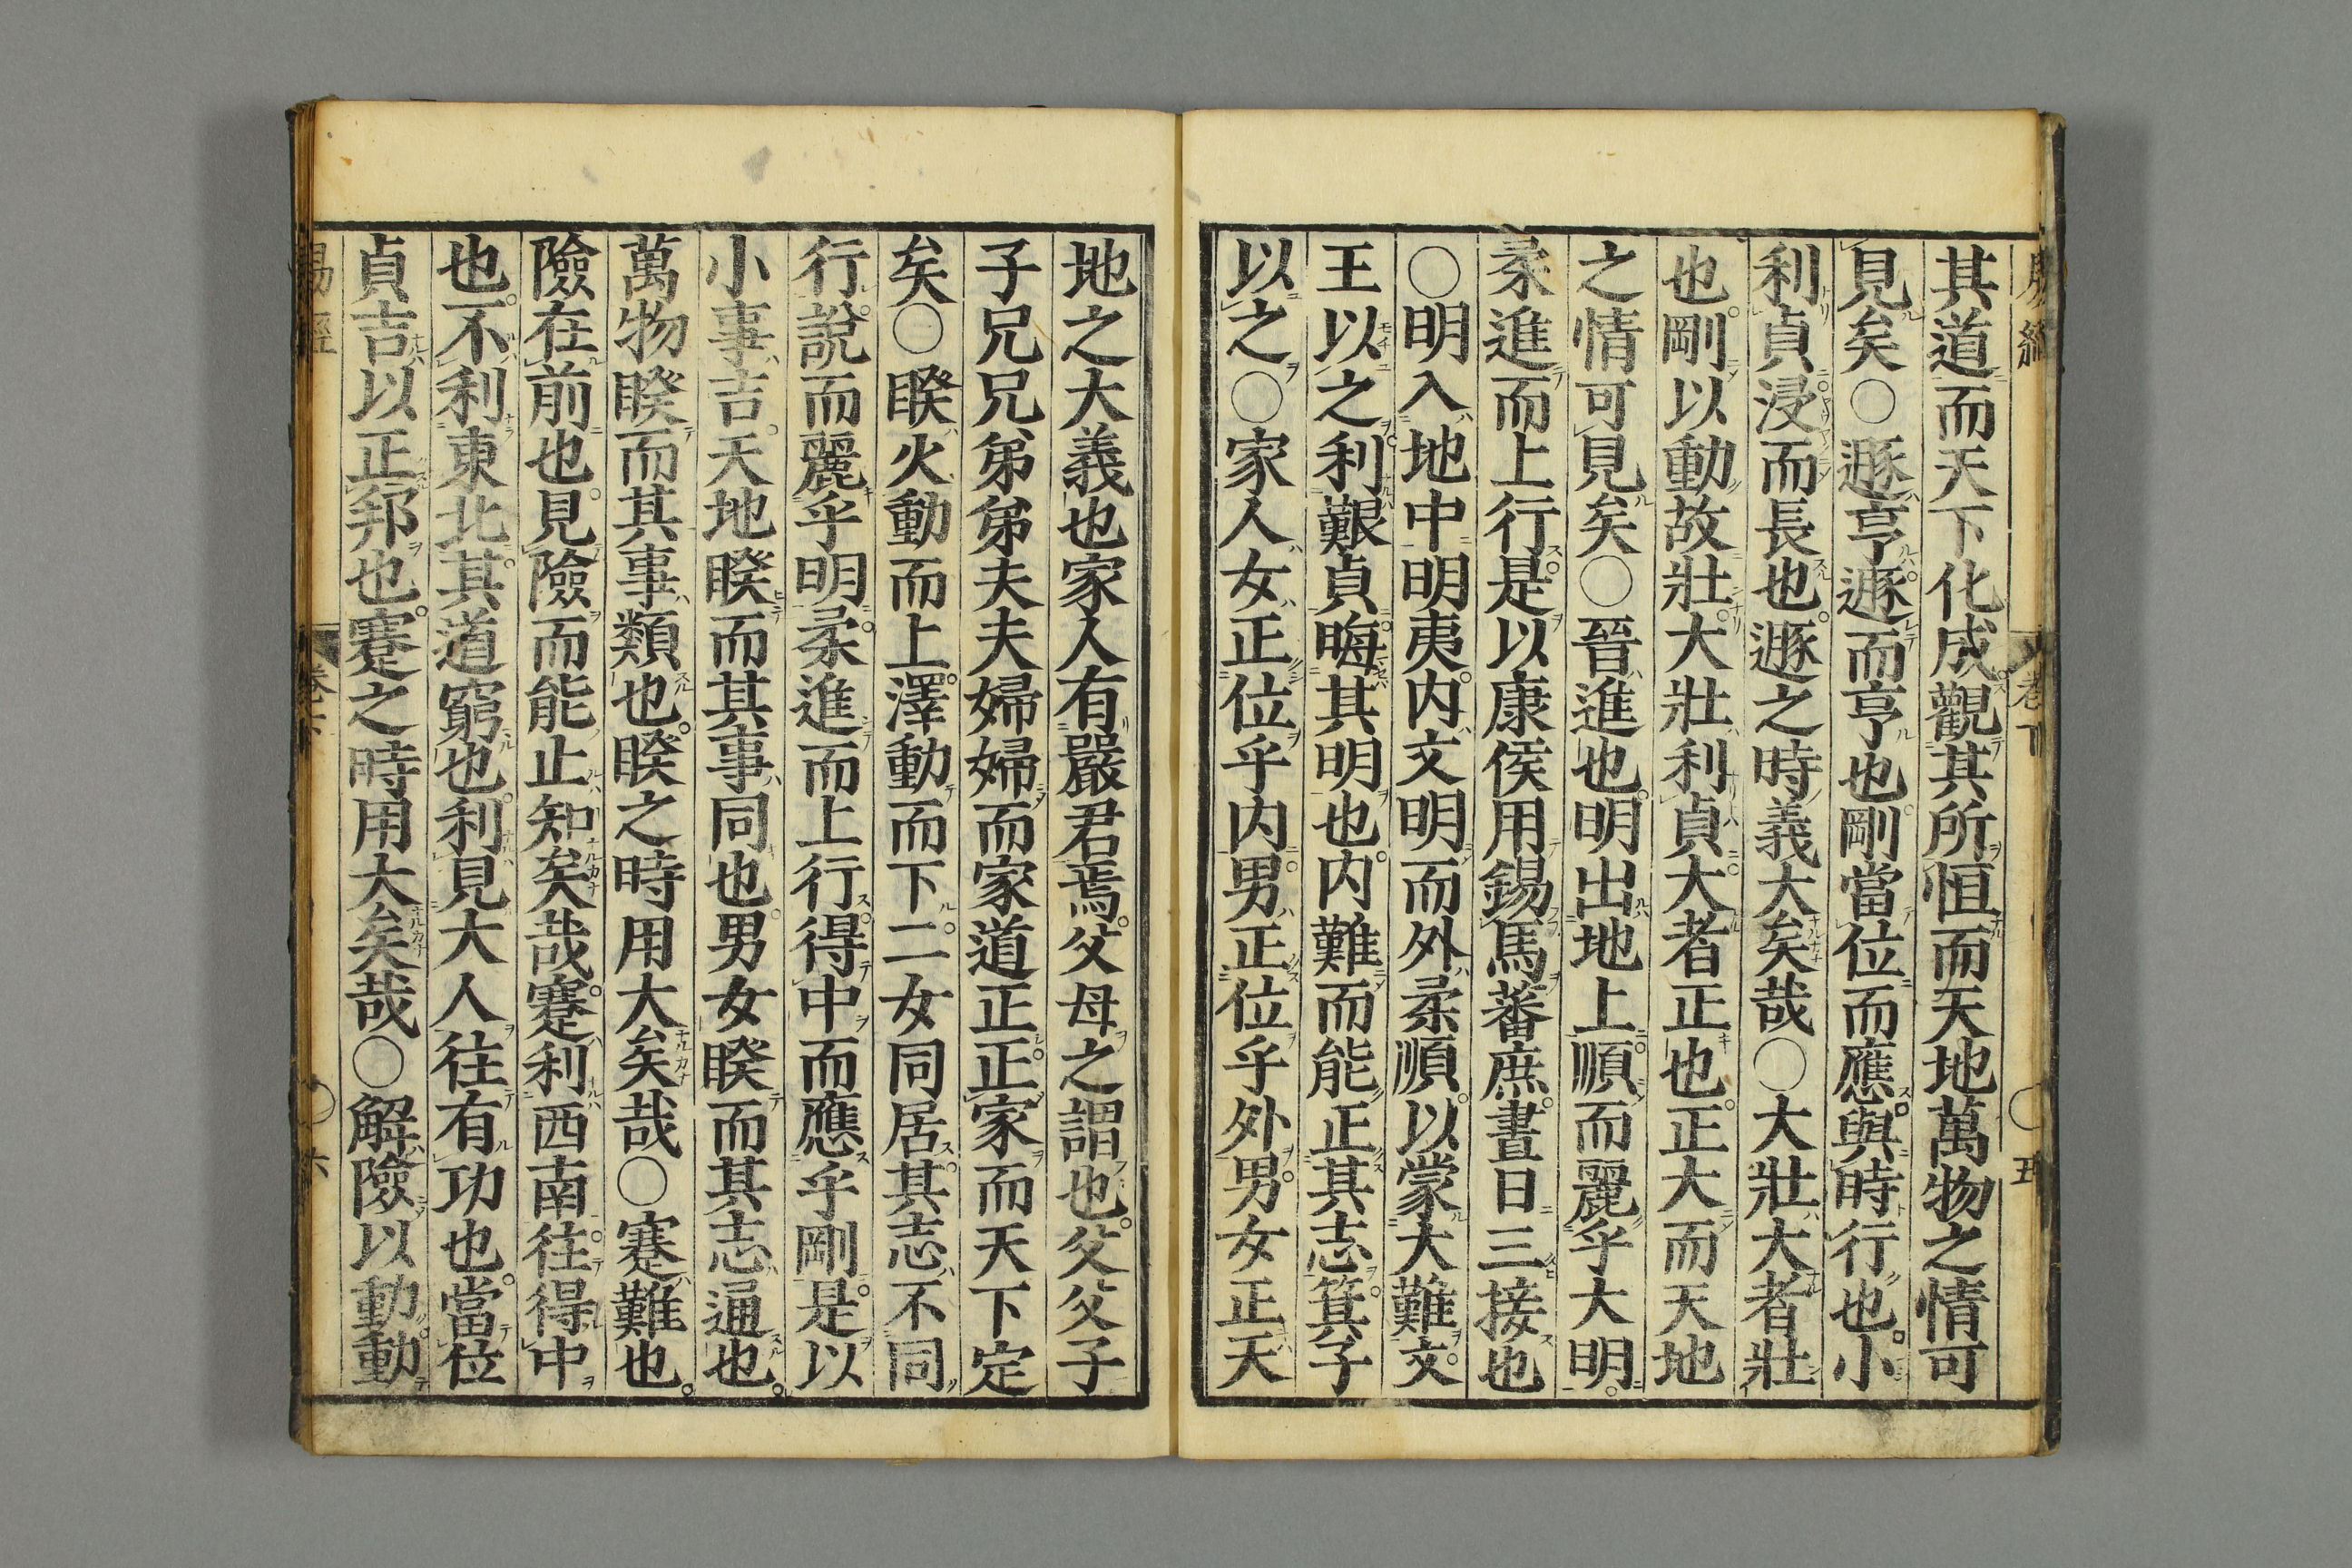 其道而天下化成觀其所恒而天地萬物之情可
見矣○遯亨遯而亨也剛當位而應與時行也小
利貞浸而長也遯之時義大矣哉○大壯大者壯
也剛以動故壯大壯利貞大者正也正大而天地
之情可見矣○晉進也明出地上順而麗乎大明
柔進而上行是以康侯用錫馬蕃庶晝日三接也
○明入地中明夷内文明而外柔順以蒙大難文
王以之利艱貞晦其明也内難而能正其志箕子
以之○家人女正位乎内男正位乎外男女正天
地之大義也家人有嚴君焉父母之謂也父父子
子兄兄弟弟夫夫婦婦而家道正正家而天下定
矣○睽火動而上澤動而下二女同居其志不同
行說而麗乎明柔進而上行得中而應乎剛是以
小事吉天地睽而其事同也男女睽而其志通也
萬物睽而其事類也睽之時用大矣哉○蹇難也
險在前也見險而能止知矣哉蹇利西南往得中
也不利東北其道窮也利見大人往有功也當位
貞吉以正邦也蹇之時用大矣哉○解險以動動